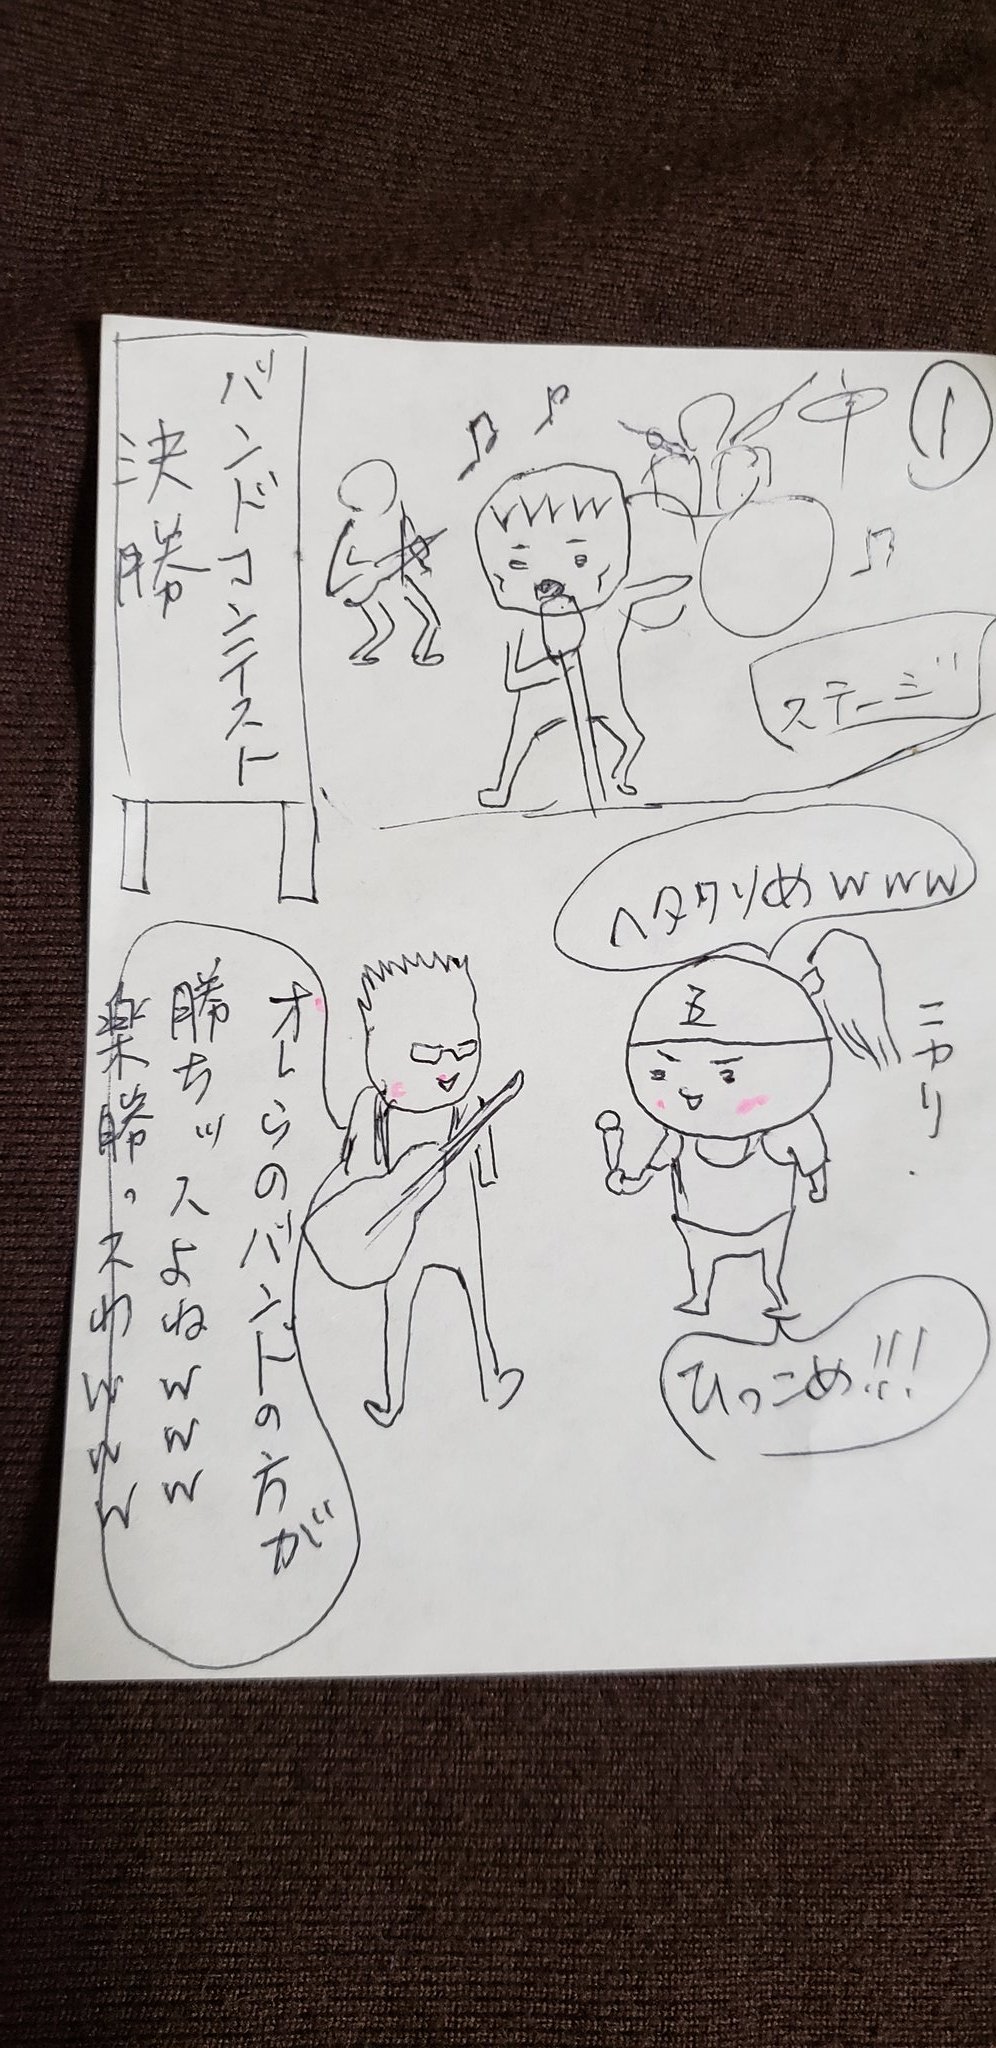 ①
ステージ
バンドコンテイスト
決勝
ヘタクソめwww
五
ニカリ
ひっこめ!!!
オレらのバンドの方が
勝ちッスよねwww
楽勝っスわwww